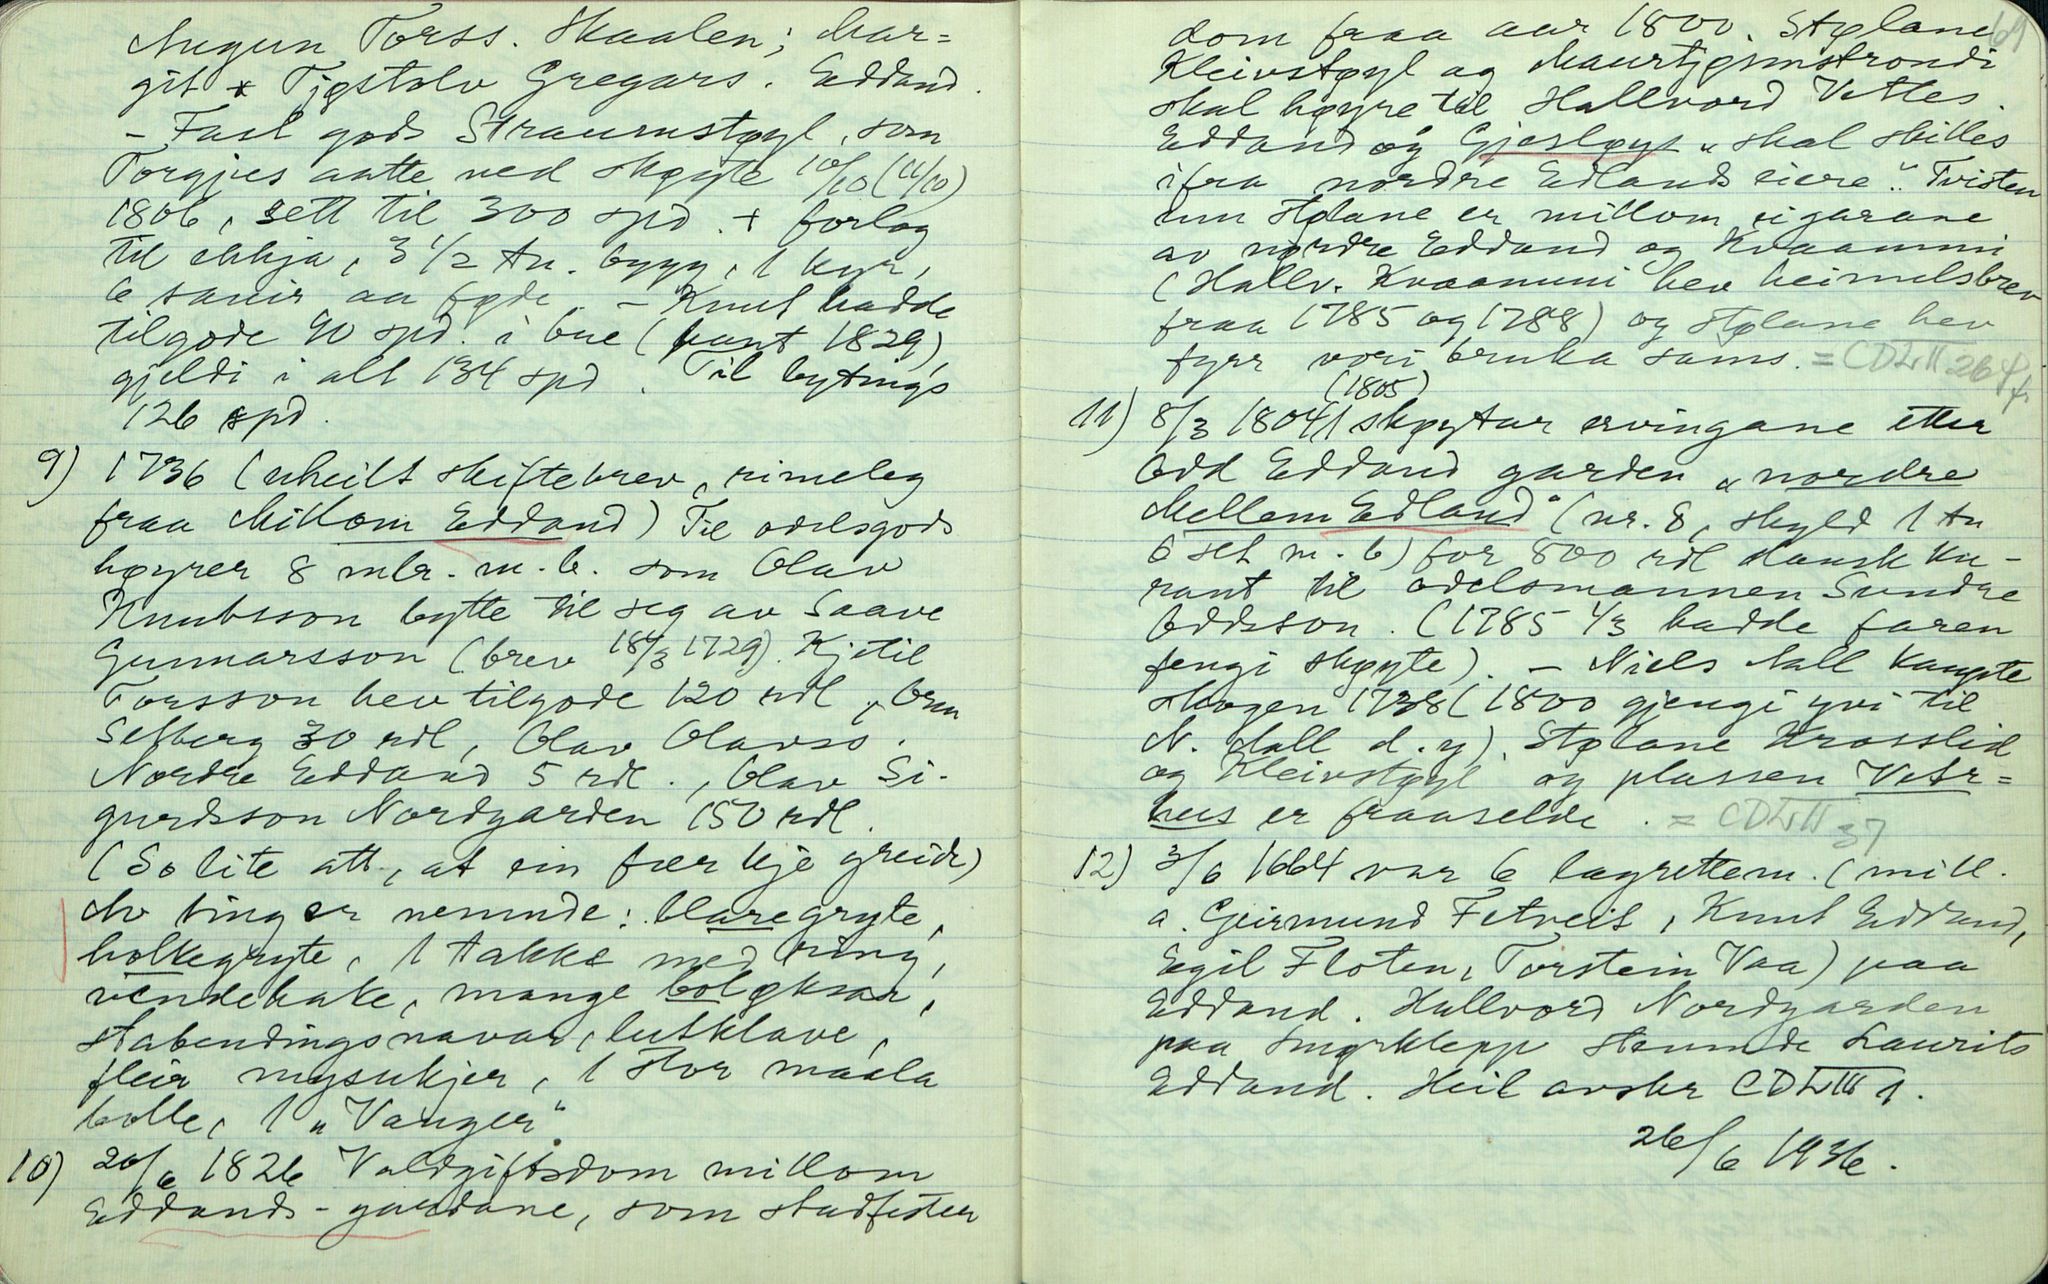 Augun Torss. Skaalen; Mar-
git * Tjøstolv Gregars. Eddand.
- Fast gods Straumstøyl, som
Torgjus aatte ved skøyte 10/10 (11/10)
1806, sett til 300 spd. + forlog
til ekkja, 3 1/2 tn. bygg, 1 kyr,
6 sauir aa føde. - Knut hadde
tilgode 90 spd. i bue (pant 1829),
gjeldi i alt 134 spd. Til bytings
126 spd.
9) 1736 (uheilt skiftebrev, rimeleg
fraa Millom Eddand) Til odelsgods
høyrer 8 mlr. m. b. som Olav
Knutsson bytte til seg av Saave
Gunnarsson (brev 18/3 1729). Kjetil
Torsson hev tilgode 120 rdl,
Selberg 30 rdl, Olav Olavss.
Nordre Eddand 5 rdl., Olav Si-
gurdsson Nordgarden 150 rdl.
(So lite att, at ein fær kje greide)
Av ting er nemnde: klaregryte,
holkegryte, 1 takke med ring,
vendekake, mange boløksar,
stabendingsnavar, lutklave,
fleir mysukjer, 1 stor maala
bolle, 1 „Vanger“.
10) 20/6 1826 Voldgiftsdom millom
Eddands-gardane, som stadfester
69
dom fraa aar 1800. Stølane
Kleivstøyl og Maurtjønnstrondi
skal høyre til Hallvord Vetles.
Eddand og Gjesløys „skal skilles
ifra nordre Edlands eiere“. Tvisten
um stølane er millom eigarane
av nørdre Eddand og Kvaammi
(Hallv. Kvaammi hev heimelsbrev
fraa 1785 og 1788) og stølane hev
fyrr vori bruka sams. = CDLII 264 f.
(1805)
11) 8/3 1804 skøytar ervingane etter
Odd Eddand garden „nordre
Mellem Edland“ (nr. 8, skyld 1 tn
6 set m. b) for 800 rdl dansk ku-
rant til odelsmannen Sundre
Oddsson. (1785 4/3 hadde faren
fengi skøyte). - Niels Aall kaupte
skogen 1738 (1800 gjengi yvi til
N. Aall d. y). Stølane Krosslid
og Kleivstøyl og plassen Vetr-
hus er fraaselde. = CDLII 37
12) 3/6 1664 var 6 lagrettem. (mill.
a. Geirmund Fetveit, Knut Eddand,
Egil Floten, Torstein Vaa) paa
Eddand. Hallvord Nordgarden
paa Smørklepp stemnde Laurits
Eddand. Heil avskr CDLIII 1.
26/6 1936.